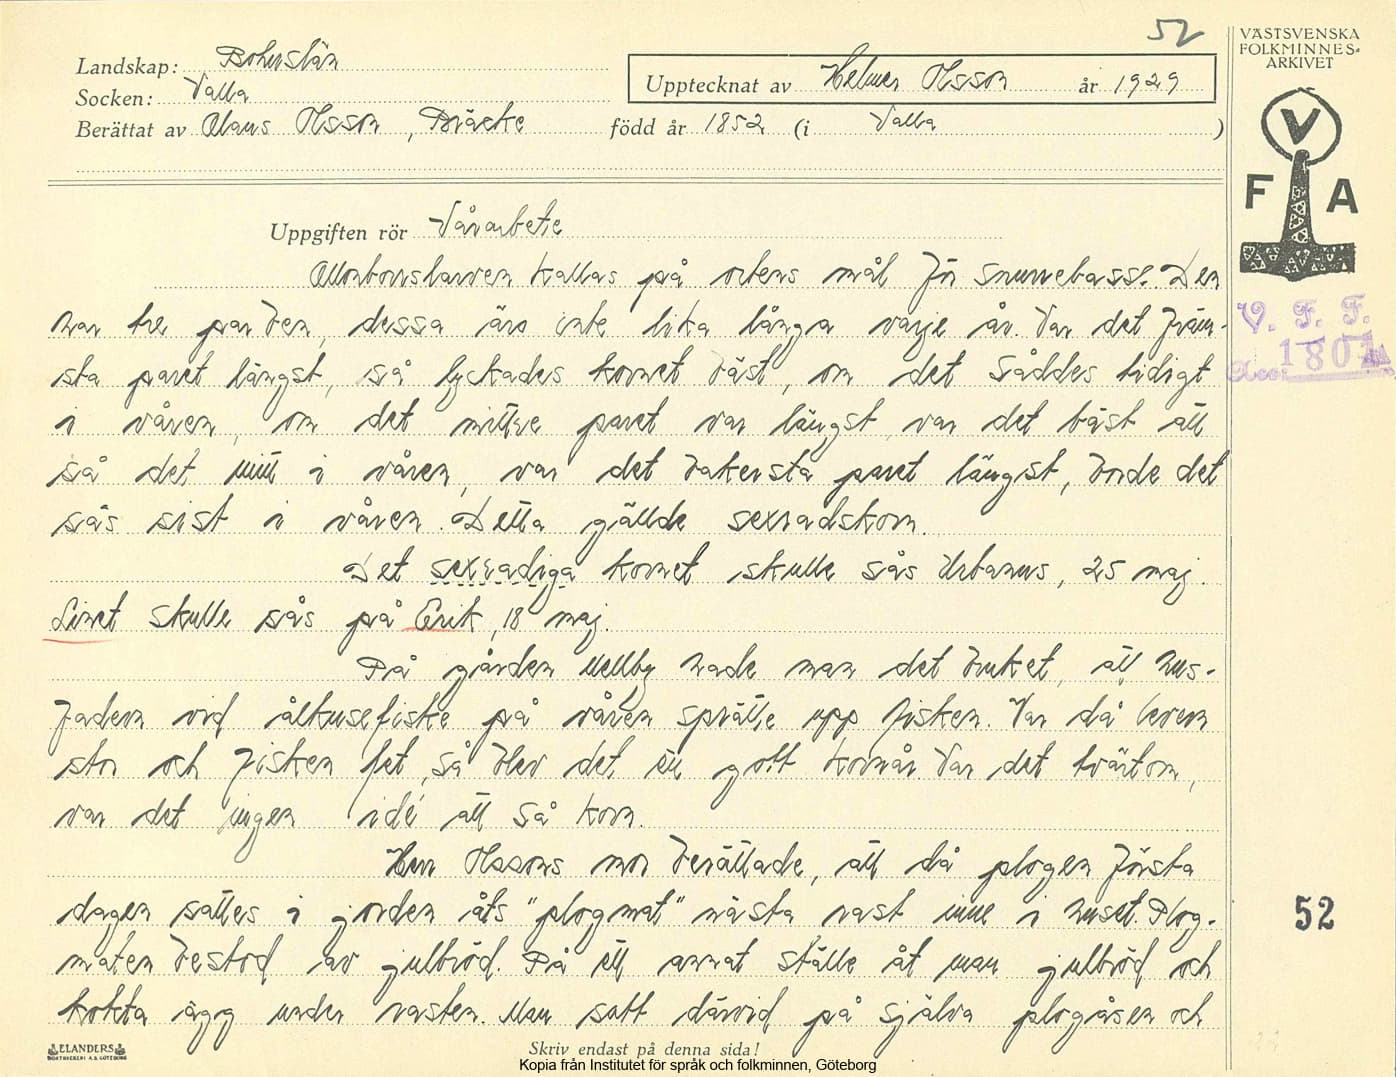 52
Landskap: Bohuslän
Socken: Valla
Berättat av Olaus Olsson, Bräcke född år 1852 (i Valla )
Upptecknat av Helmer Olsson år 1929
VÄSTSVENSKA
FOLKMINNES-
ARKIVET
V
F A
V. F. F.
Acc. 1801
Uppgiften rör Vårarbete
Ollonborrslarven kallas på ortens mål för snurrebasse. Den
har tre par ben, dessa äro inte lika långa varje år. Var det främ-
sta paret längst, så lyckades kornet bäst, om det såddes tidigt
i våren, om det mittre paret var längst var det bäst att
så det mitt i våren, var det bakersta paret längst, borde det
sås sist i våren. Detta gällde sexradskorn.
Det sexradiga kornet skulle sås Urbanus, 25 maj.
Linet skulle sås på Erik, 18 maj.
På gården Mellby hade man det bruket, att hus-
fadern vid ålkusefiske på våren sprätte upp fisken. Var då levern
stor och fisken fet, så blev det ett gott kornår. Var det tvärtom,
var det ingen idé att så korn.
Herr Olssons mor berättade, att då plogen första
dagen sattes i jorden åts "plogmat" nästa rast inne i huset. Plog-
maten bestod av julbröd. På ett annat ställe åt man julbröd och
kokta ägg under rasten. Man satt därvid på själva plogåsen och
52
ELANDERS
BOKTRYCKERI A.B. GÖTEBORG
Skriv endast på denna sida!
Kopia från Institutet för språk och folkminnen, Göteborg